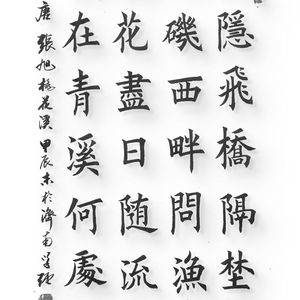 隱飛橋隔埜
磯西畔問漁
花盡日随流
在青溪何處
唐張旭桃花溪甲辰末於濟南